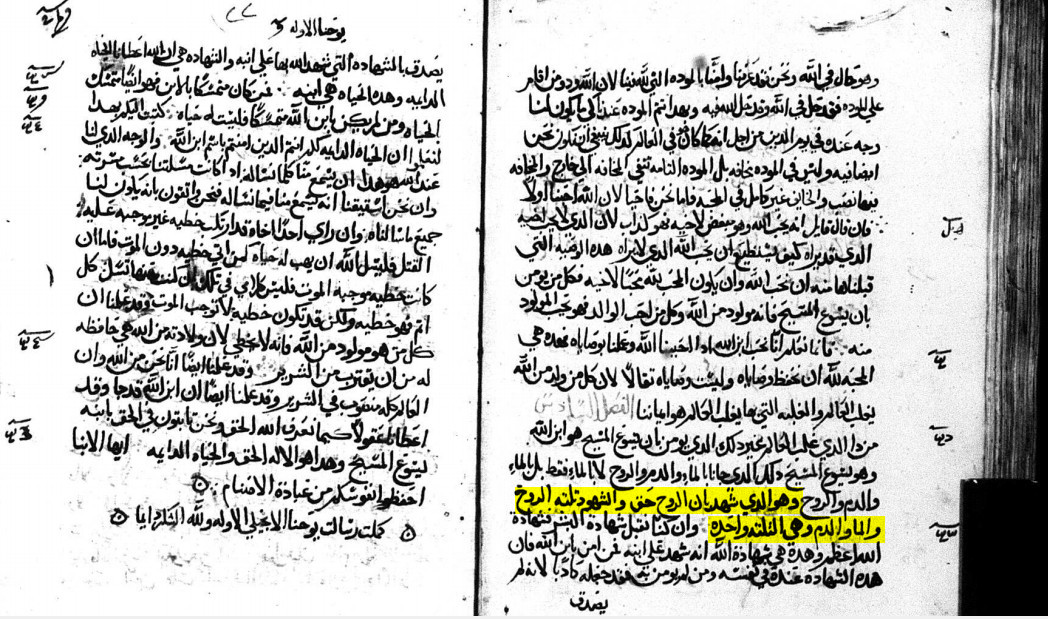 على المودة فقد حل في الله وقد حل الله فيه وبهذا تتم المودة عندنا كي يكون لنا
وجه عنده في يوم الدين من اجل انه كما كان في العالم كذلك ينبغي ان نكون نحن
ايضا فيه وليس في المودة مخافه بل المودة التامة تنفي المخافة الى خارج والمخافه
فيها نصب والخايف غير كامل في المحبه فاما نحن فاحبنا لان الله احبنا اولا
فان قال قايل انه يحب الله وهو مبغض لاخيه فهو كذاب لان الذي لا يحب اخيه
الذي قد يراه كيف يستطيع ان يحب الله الذي لا يراه هذه الوصيه التي
قبلناها منه ان نحب الله وان يكون المحب لله محبا لاخيه فكل من يومن
بان يسوع المسيح فانه مولود من الله وكل من احب الوالد فهو يحب المولود
منه فانا نعلم انا نحب ابن الله اذا احببنا الله وعملنا بوصاياه فهذه هي
المحبه لله ان نحفظ وصاياه وليست وصاياه ثقالا لان كل من ولد من الله
يغلب العالم والغلبه التي بها يغلب العالم هو ايماننا
من ذا الذي غلب العالم غير ذلك الذي يومن بان يسوع المسيح هو ابن الله
وهو يسوع المسيح وذلك الذي جانا بالماء والدم والروح لا بالماء فقط بل بالماء
والدم والروح وهو الذي شهد بان الروح حق والشهود ثلثه الروح
والما والدم وهي الثلثه واحده وان كنا نقبل شهادة البشر فشهادة
الله اعظم وهذه هي شهادة الله انه شهد على ابنه فمن امن بابن الله فان
هذه الشهادة عنده في نفسه ومن لم يومن به فقد جعله كاذبا لانه لم
يصدق
يوحنا الاوله
يصدق بالشهاده التي شهد الله بها على ابنه والشهاده هي ان الله اعطانا الحياه
الدايمه وهذه الحياه هي ابنه فمن كان متمسكا بالابن فهو ايضا متمسك
الحياه ومن لم يكن بابن الله متمسكا فليست له حياه كتبت اليكم بهذا
لتعلموا ان الحياه الدايمه لكم انتم الذين امنتم باسم ابن الله والوجه الذي لنا
عند الله هو هذا ان يسمع منا كلما نساله اذا كانت مسئلتنا بحسب مسرته
وان نحن استيقنا انه يسمع منا فيما نساله فنحن واثقون بانه يكون لنا
جميع ما سالناه وان راى احدا اخاه قد ارتكب خطيه غير موجبه عليه
القتل فليسل الله ان يهب له حياه كمن اتى خطيه دون الموت فاما ان
كانت خطيه موجبة الموت فليس كلامي في تلك كل
اثم فهو خطيه ولكن قد تكون خطيه لا توجب الموت وقد علمنا ان
كل من هو مولود من الله فانه لا يخطي لان ولادته من الله هي حافظه
له من ان يقترب من الشرير وقد علمنا ايضا انا نحن من الله وان
العالم كله منصوب في الشرير وقد علمنا ايضا ان ابن الله قد جا وقد
اعطانا عقولا كيما نعرف الله الحق ونحن ثابتون في الحق بابنه
يسوع المسيح وهذا هو الاله الحق والحياه الدايمه ايها الابنا
احفظوا انفسكم من عبادة الاصنام
كملت رسالت يوحنا الانجيلي الاوله ولله الشكر دايما